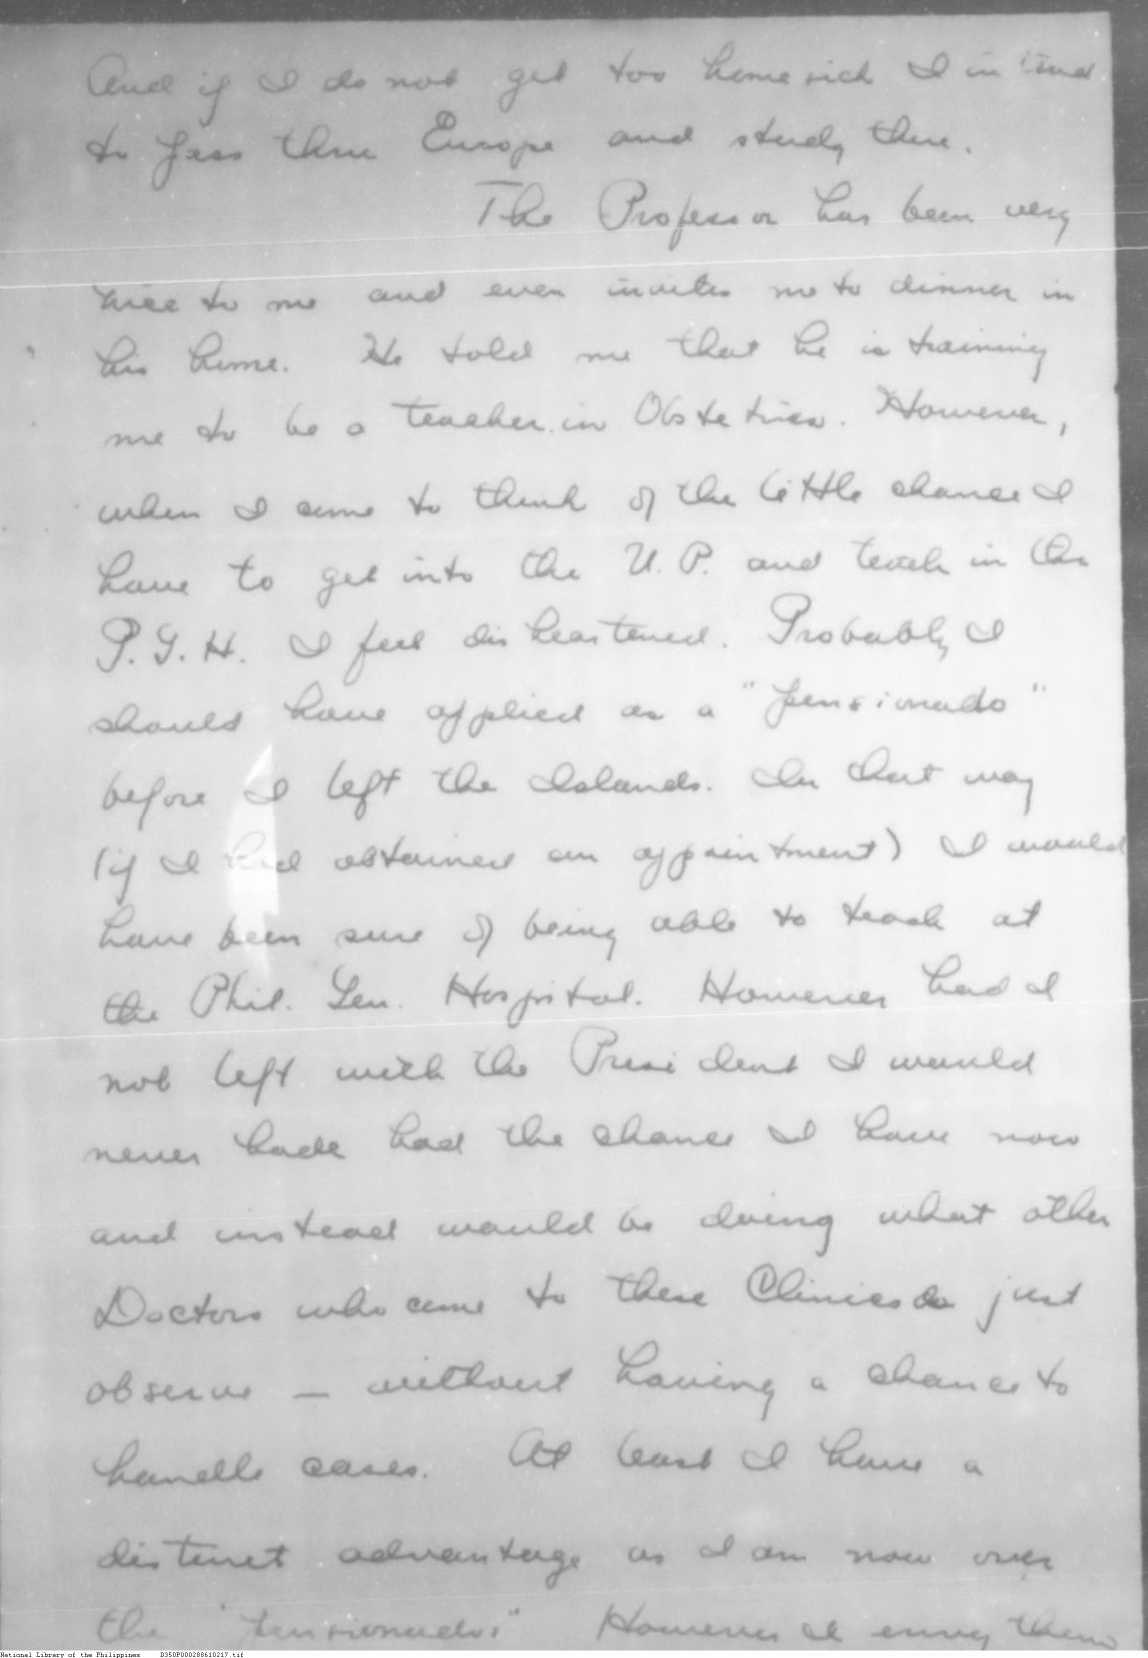 And if I do not get too home sick I intend
to pass thru Europe and study there.
The Professor has been very
nice to me and even invites me to dinner in
his home. He told me that he is training
me to be a teacher in Obstetrics. However,
when I come to think of the little chance I
have to get into the U.P. and teach in the
P.G.H. I feel disheartened. Probably I
should have applied as a "pensionado"
before I left the Islands. In that way
(if I had obtained an appointment) I would
have been sure of being able to teach at
the Phil. Gen. Hospital. However had I
not left with the President I would
never have had the chance I have now
and instead would be doing what other
Doctors who come to these Clinics do just
observe — without having a chance to
handle cases. At least I have a
distinct advantage as I am now over
the "pensionados" However I envy them
National Library of the Philippines D350P000288610217.tif